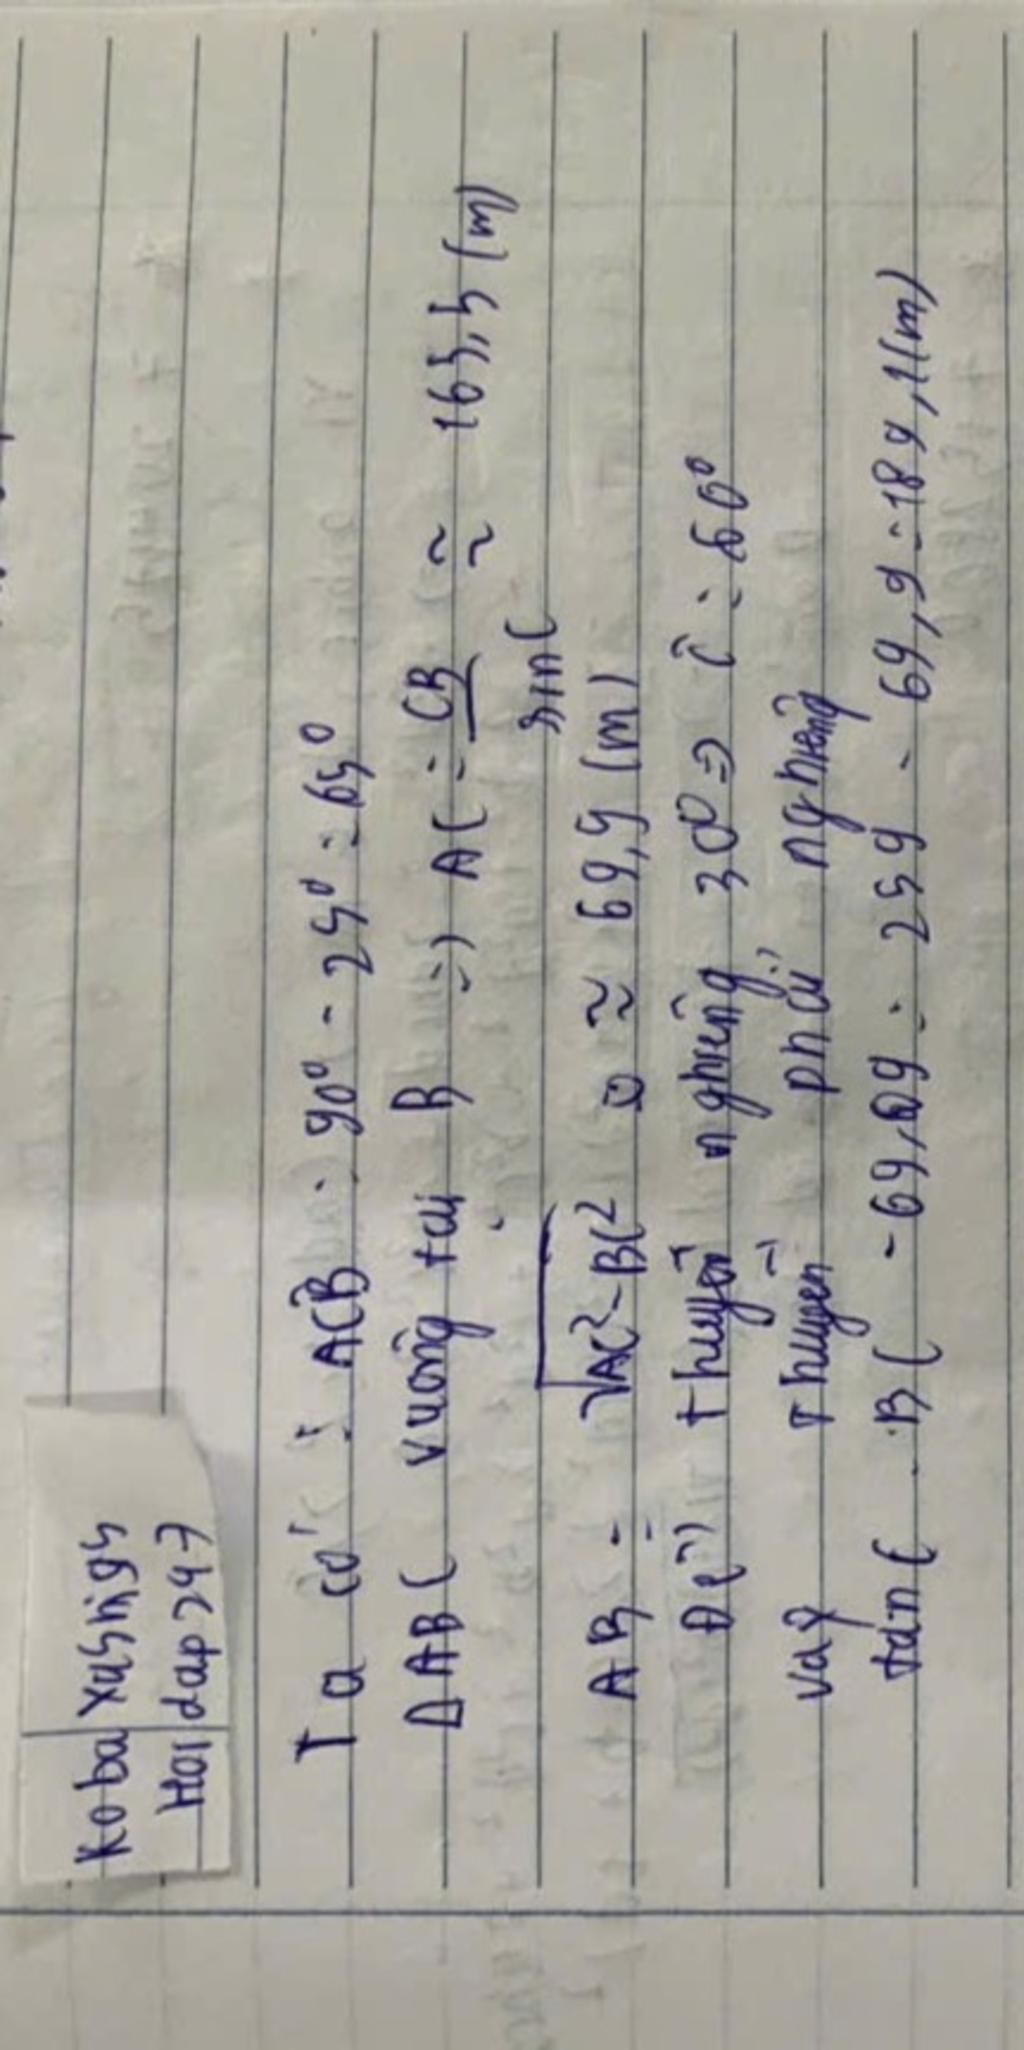 Koba xusnigs
Hoi dap 247
Ta có: ACB = 90° - 25° = 65°
ΔABC vuông tại B => AC = CB / sinC ≈ 165,5 (m)
AB = √AC²-BC² ≈ 69,9 (m)
thuyền nghiêng 30° => Ĉ = 60°
vậy Thuyền phải nghiêng
tanC . BC - 69,69 = 259 - 69,9 = 189,1(m)